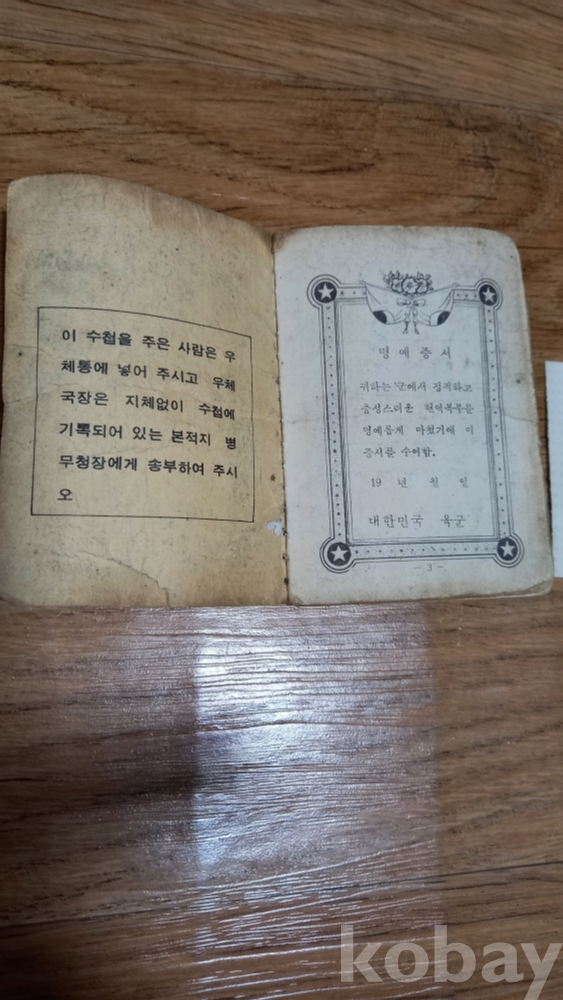 이 수첩을 주은 사람은 우
체통에 넣어 주시고 우체
국장은 지체없이 수첩에
기록되어 있는 본적지 병
무청장에게 송부하여 주시
오
명예증서
귀하는 군에서 정직하고
충성스러운 현역복무를
명예롭게 마쳤기에 이
증서를 수여함.
19 년 월 일
대한민국 육군
-3-
kobay